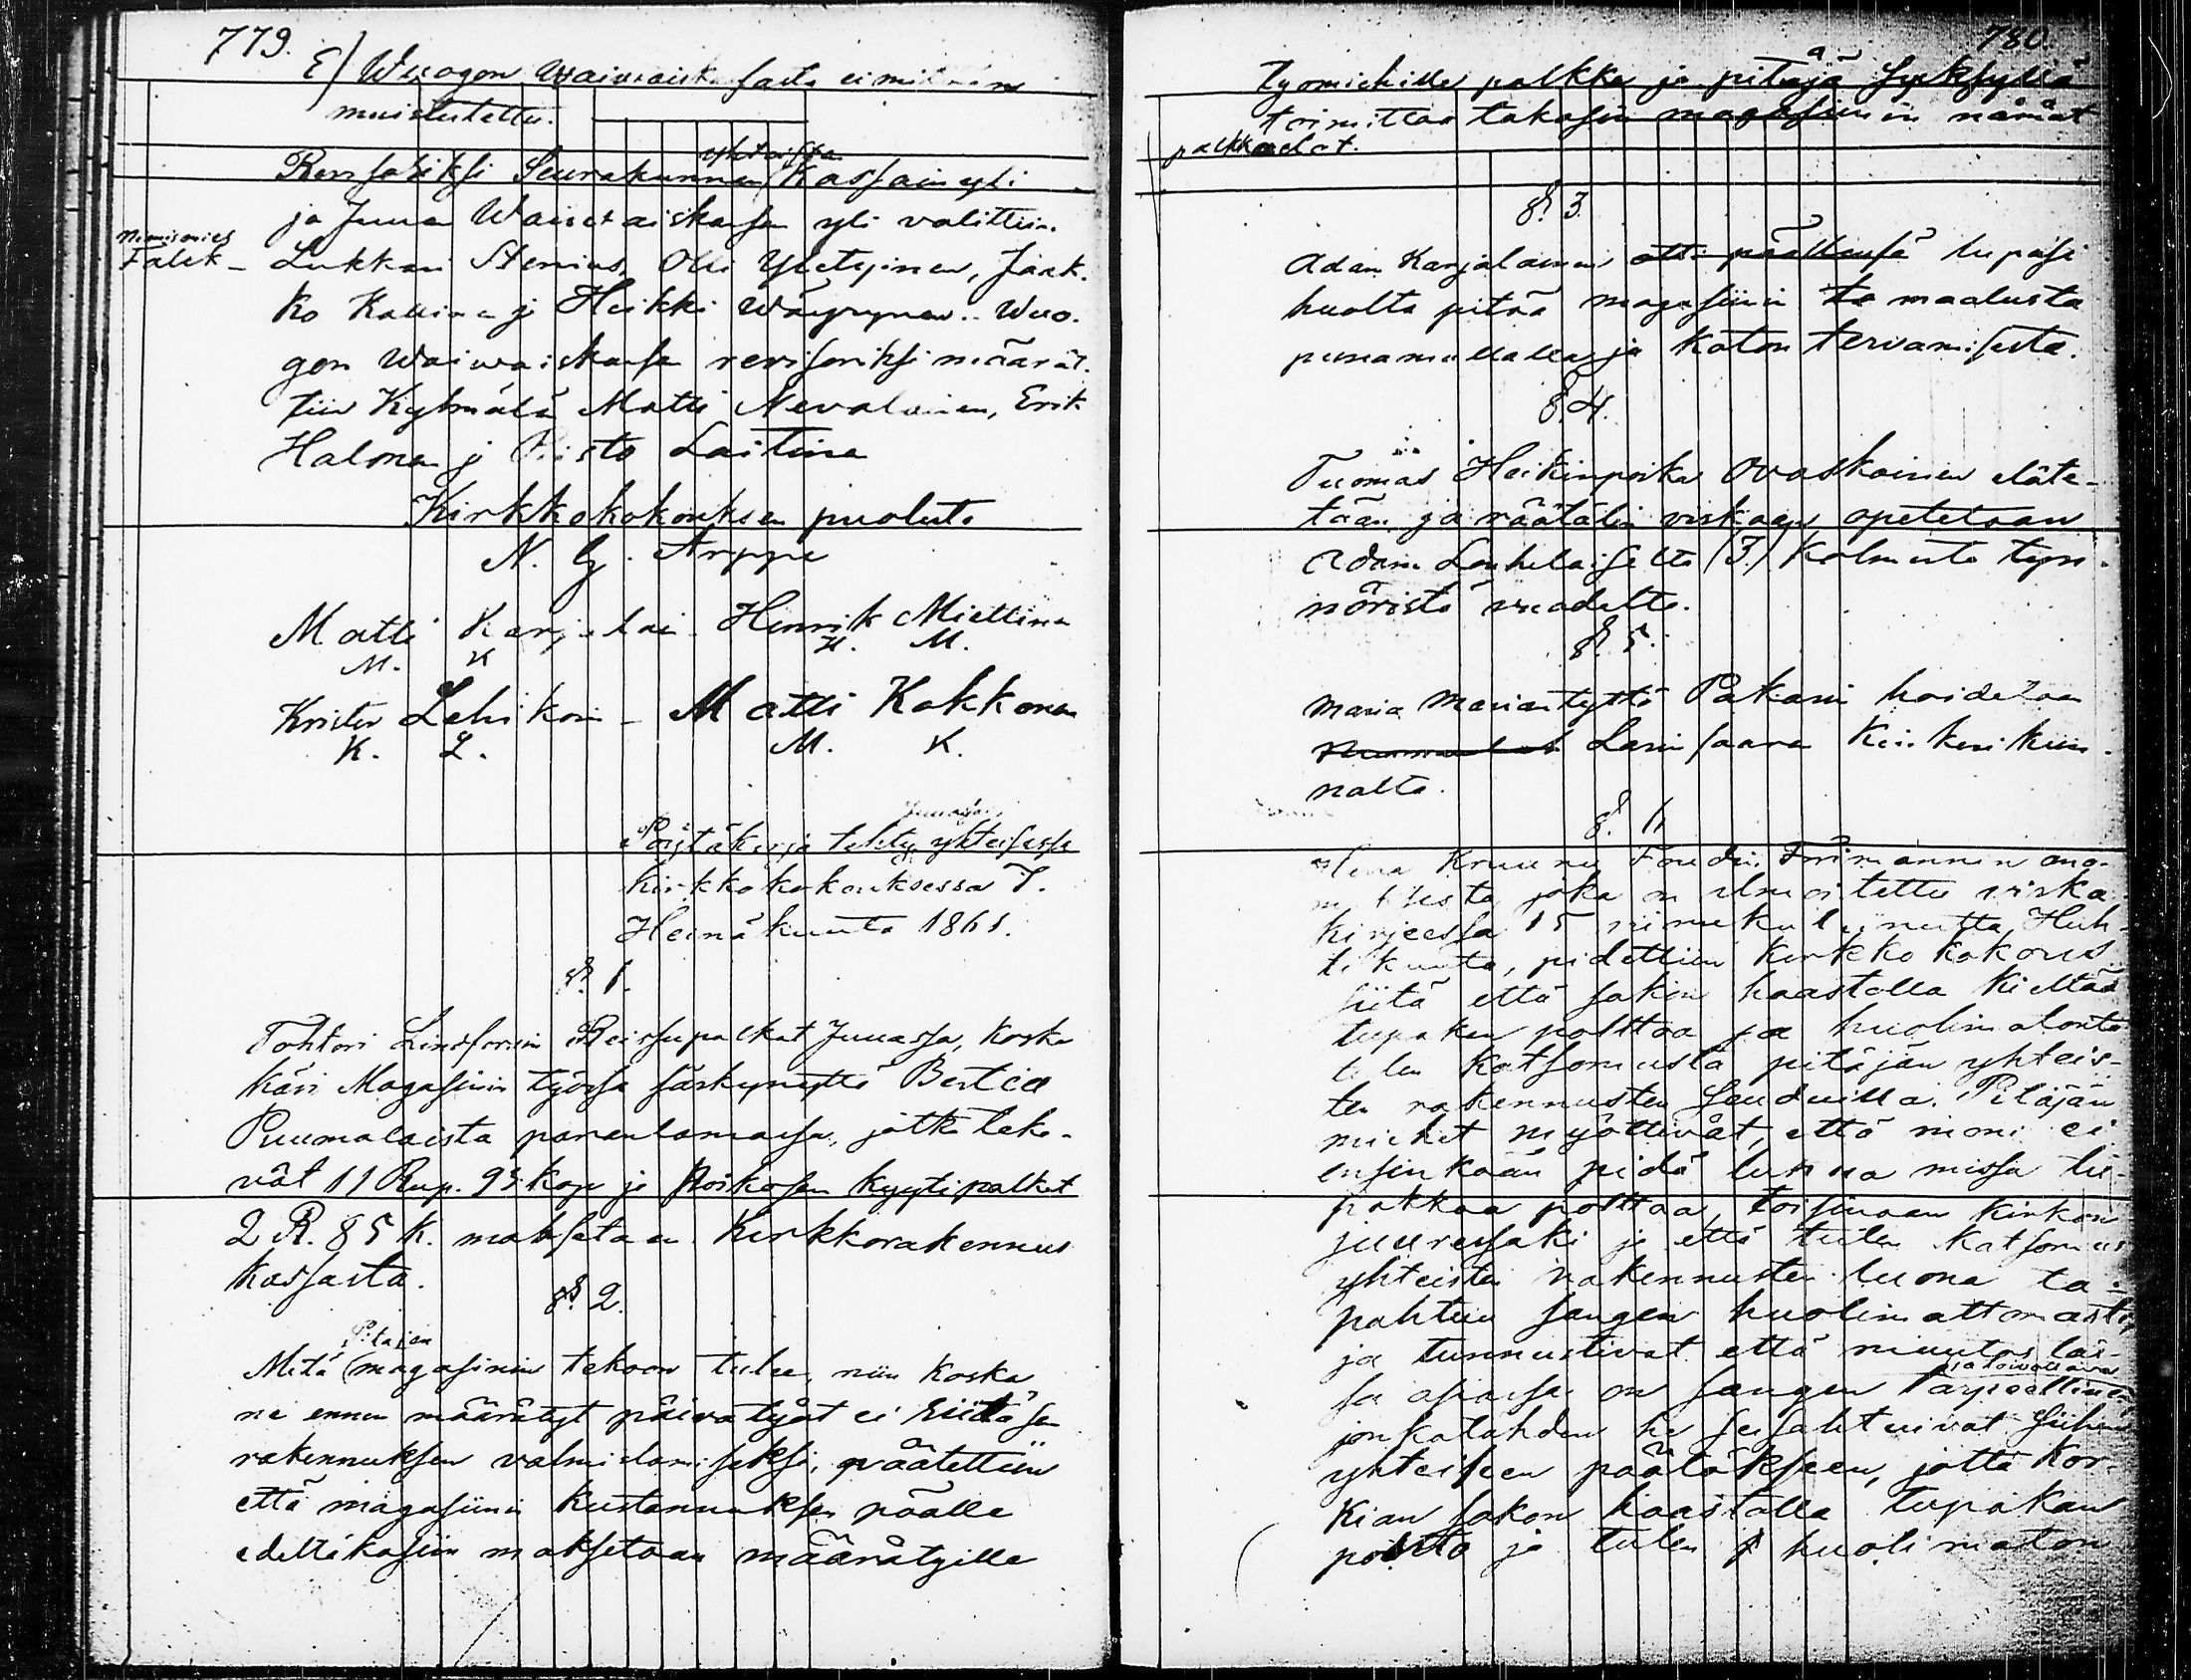 779.
E) Wuogon waiwaiskassasta ei mitään
muistutettu.
yhteisten
Revisoriksi Seurakunnan Kassain yli
ja Juuan Waiwaiskassan yli valittiin
Nimismies
Falck - Lukkari Stenius, Olli Yletyinen, Jaak-
ko Kallinen ja Heikki Wäyrynen. Wuo-
gon Waiwaiskassan revisoriksi määrät-
tiin Kylmälä Matti Nevalainen, Erik
Halonen j Risto Laitinen
Kirkkokokouksen puolesta
N. G. Arppe
Matti Karjalai Henrik Miettinen
M. K H. M.
Krister Lehikoin - Matti Kokkonen
K. L. M. K.
Juuassa
Pöytäkirja tehty yhteisessä
kirkkokokouksessa 7.
Heinäkuuta 1861.
§. 1.
Tohtori Lindforsin Reissupalkat Juuassa, koska
kävi Magasinin työssä särkynyttä Bertia
Puumalaista parantamassa, jotka teke-
vät 11 Rup. 93 kop ja Poikosen kyytipalkat
2 R. 85 K. maksetaan Kirkkorakennus
kassasta.
§. 2.
Pitäjän
Mitä magasinin tekoon tulee, niin koska
ne ennen määrätyt päivätyöt ei riitä sen
rakennuksen valmistamiseksi, päätettiin
että magasiinin kustannuksen päälle
edeltäkäsiin maksetaan määrätyille
780.
työmiehille palkka ja pitäjä syksyllä
toimittaa takasin magasiiniin nämät
palkkaelot.
§. 3.
Adam Karjalainen otti päällensä lupasi
huolta pitää magasiinin ta maalusta
punamullalla ja katon tervamisesta.
§. 4.
Tuomas Heikinpoika Ovaskainen eläte-
tään ja räätälin viskaan opetetaan
Adam Louhelaiselta (3.) kolmesta tyn-
nöristä vuodelta.
§. 5.
Maria Mariantyttö Pakarin hoidetaan
Larinsaaren Keikerikun-
nalta.
§. 6
Herra Kruunu Foudin Forsmannin ano-
muksesta joka on ilmoitettu viska
kirjeessä 15 viimekulunutta Huh-
tikuuta, pidettiin kirkko kokous
siitä että sakon haastolla kieltää
tupakan polttoa ja huolimatonta
tulen katsomusta pitäjän yhteis-
ten rakennusten seuduilla. Pitäjän
miehet myöttivät, että moni ei
ensinkään pidä lukua missä tu-
pakkaa polttaa, toisinaan kirkon
juuressaki ja että tulen katsomus
yhteisten rakennusten luona ta-
pahtuu sangen huolimattomasti,
ja tunnustivat että muutos täs-
ja toivottava
sä asiassa on sangen tarpeellinen
jonkatähden he seisahtuivat siihen
yhteiseen päätökseen, jotta kor-
kian sakon haastolla tupakan
poltto ja tulen huolimaton